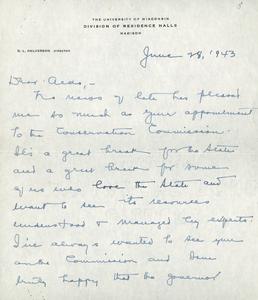 THE UNIVERSITY OF WISCONSIN
DIVISION OF RESIDENCE HALLS
MADISON
D. L. HALVERSON, DIRECTOR
June 28, 1943
Dear Aldo,-
No news of late has pleased
me so much as your appointment
to the Conservation Commission.
It's a great break for the State
and a great break for some
of us who love the State and
want to see its resources
understood & managed by experts.
I've always wanted to see you
on the Commission and I'm
truly happy that the governor